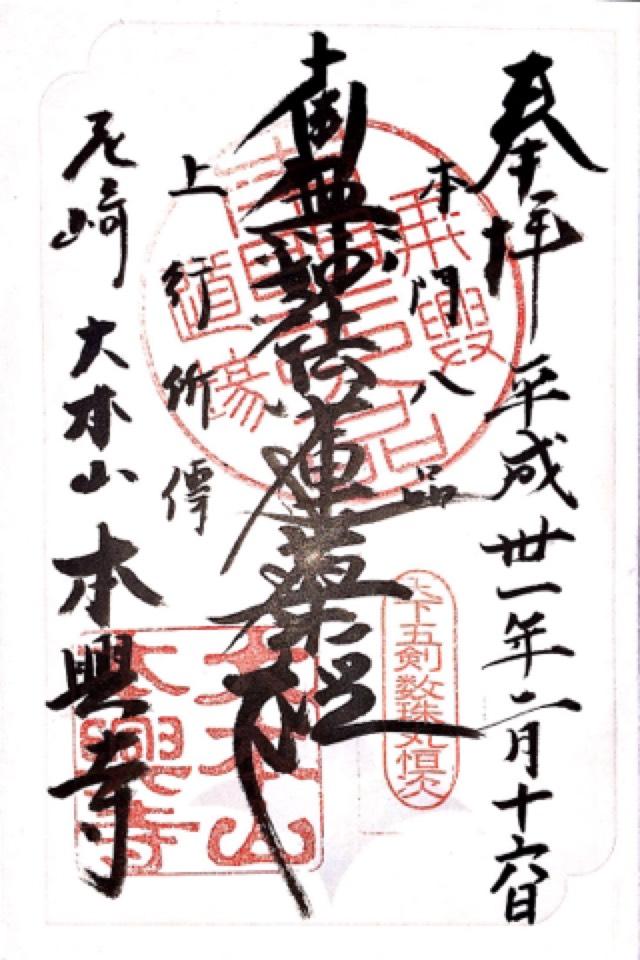 奉拝 平成卅一年二月十六日
本門八品
南無妙法蓮華経
上行所傳
尼崎 大本山 本興寺
天下五剣数珠丸恒次
大本山
本興寺